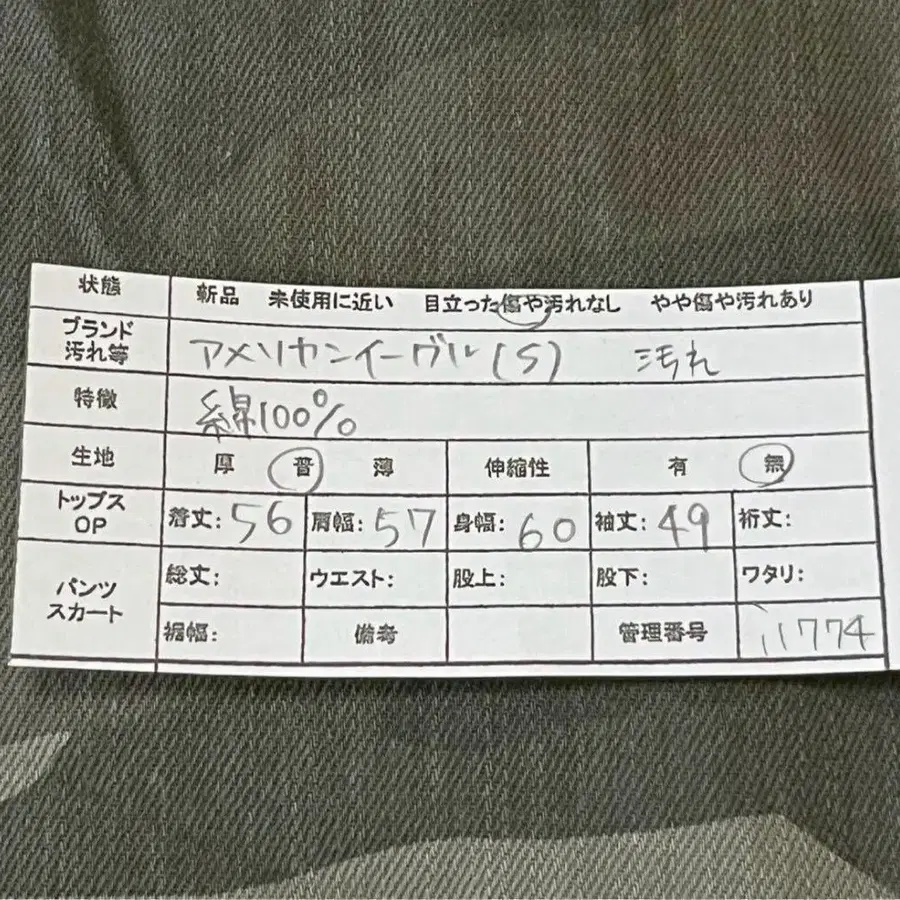 状態 新品 未使用に近い 目立った傷や汚れなし やや傷や汚れあり
ブランド
汚れ等 アメリカンイーグル(S) 汚れ
特徴 綿100%
生地 厚 普 薄 伸縮性 有 無
トップス
OP 着丈: 56 肩幅: 57 身幅: 60 袖丈: 49 裄丈:
パンツ
スカート 総丈: ウエスト: 股上: 股下: ワタリ:
裾幅: 備考 管理番号 11774